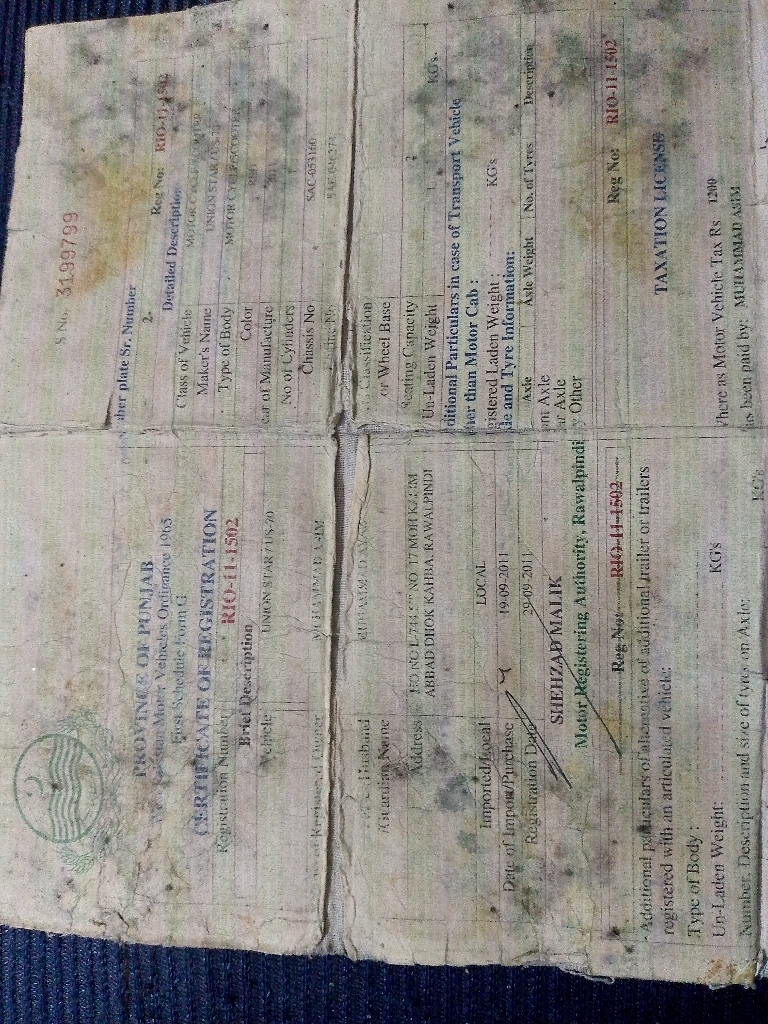 PROVINCE OF PUNJAB
Motor Vehicles Ordinance 1965
First Schedule Form G
CERTIFICATE OF REGISTRATION
Registration Number RIO-11-1502
Brief Description
Vehicle UNION STAR / US-70
of Registered Owner MUHAMMAD ASIM
Husband MUHAMMAD
/Guardian Name
Address HO NO L-744 ST NO 17 MOH
ABBAD DHOK KAHBA, RAWALPINDI
Imported/Local LOCAL
Date of Import/Purchase 19-09-2011
Registration Date 29-09-2011
SHEHZAD MALIK
Motor Registering Authority, Rawalpindi
Reg No: RIO-11-1502
Additional particulars of alternative of additional trailer or trailers
registered with an articulated vehicle:
Type of Body :
Un-Laden Weight: KG's
Number, Description and size of tyres on Axle:
KG's
S No. 3199799
plate Sr. Number
2. Reg No: RIO-11-1502
Detailed Description
Class of Vehicle
Maker's Name UNION STAR / US-70
Type of Body MOTOR CYCLE/SCOOTER
Color
of Manufacture
No of Cylinders
Chassis No SAC-053160
Classification
or Wheel Base
Seating Capacity 2
Un-Laden Weight KG's.
ditional Particulars in case of Transport Vehicle
her than Motor Cab :
gistered Laden Weight : KG's
le and Tyre Information:
Axle Axle Weight No. of Tyres Description
Axle
Axle
y Other
Reg No: RIO-11-1502
TAXATION LICENSE
here as Motor Vehicle Tax Rs 1200
as been paid by: MUHAMMAD ASIM